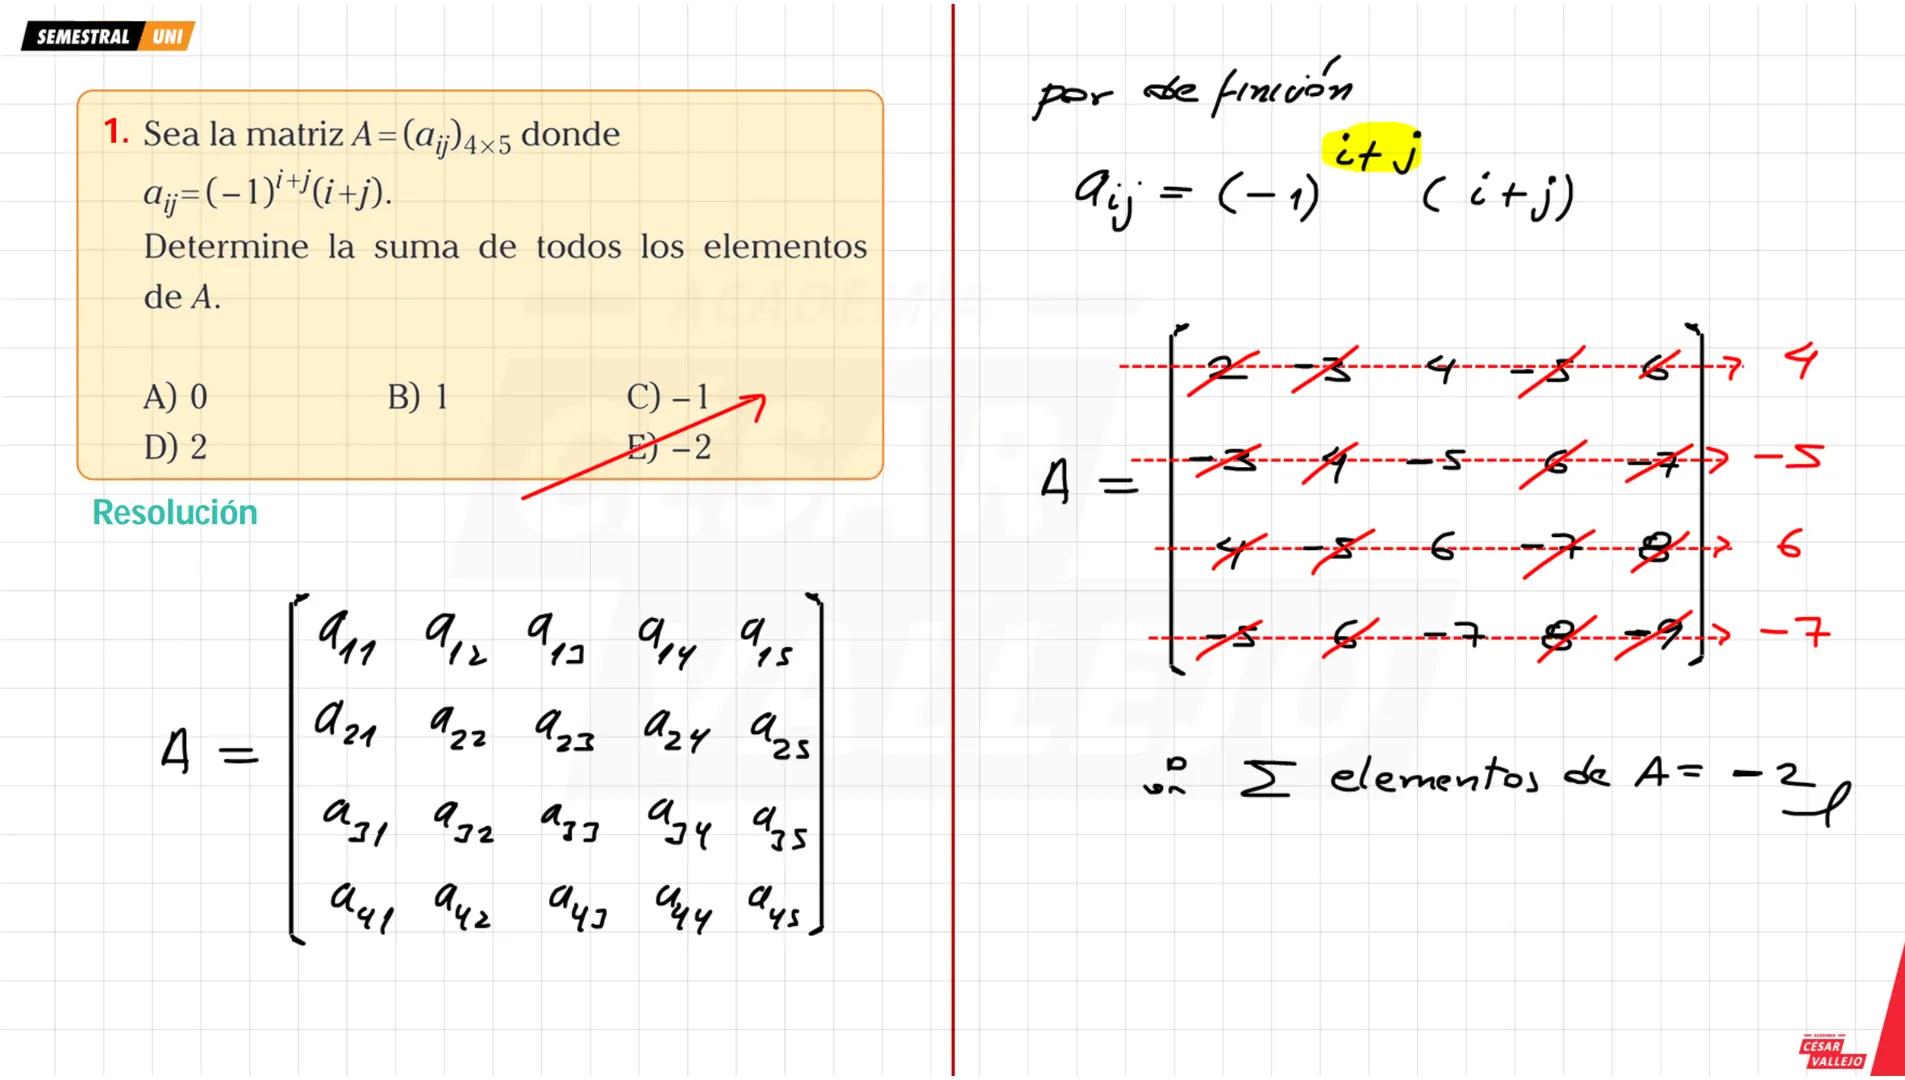 SEMESTRAL UNI
1. Sea la matriz A=(aij)4×5 donde
aij=(−1)^i+j(i+j).
Determine la suma de todos los elementos
de A.
A) 0 B) 1 C) −1
D) 2 E) −2
Resolución
A = [ a11 a12 a13 a14 a15
a21 a22 a23 a24 a25
a31 a32 a33 a34 a35
a41 a42 a43 a44 a45 ]
por definición
aij = (−1)^i+j (i+j)
A = [ 2 −3 4 −5 6 ] → 4
−3 4 −5 6 −7 → −5
4 −5 6 −7 8 → 6
−5 6 −7 8 −9 → −7
∑ elementos de A = −2
ACADEMIA
CÉSAR
VALLEJO
ACADEMIA
CÉSAR
VALLEJO